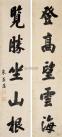 登高望雲海
覽勝坐山根